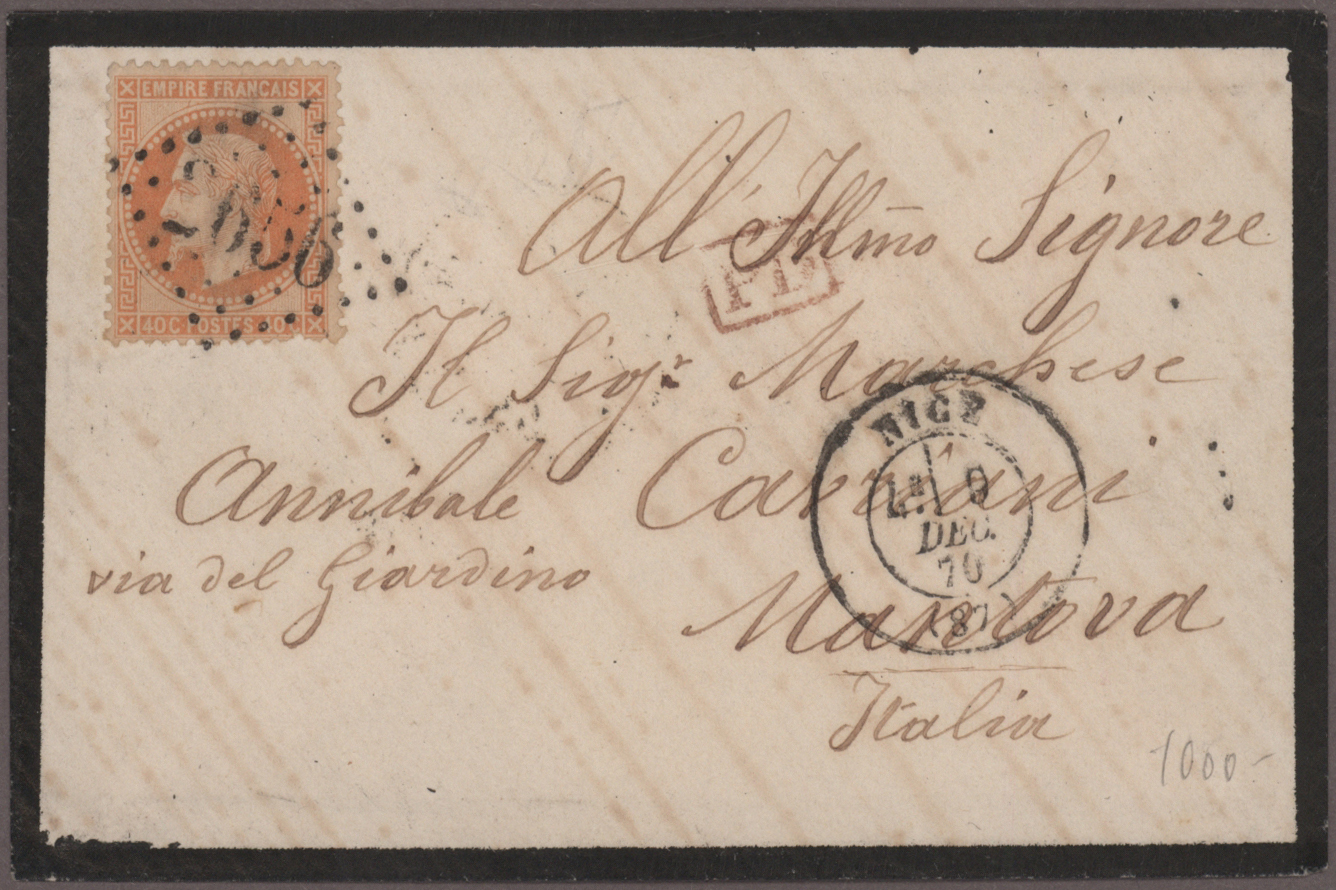 EMPIRE FRANÇAIS
2656
40 C POSTES 40 C
All' Illm̃o Signore
PD
Il Sigr. Marchese
Annibale Cavriani
via del Giardino
Mantova
Italia
NICE
9
DEC.
70
(87)
1000-